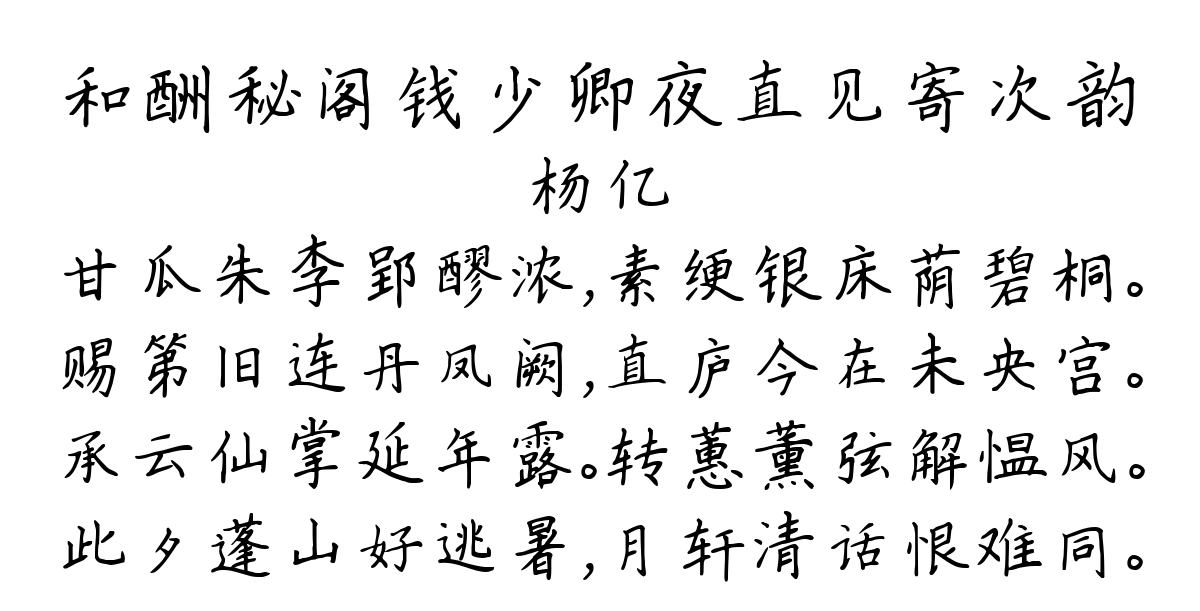 和酬秘阁钱少卿夜直见寄次韵
杨亿
甘瓜朱李郢醪浓,素绠银床荫碧桐。
赐第旧连丹凤阙,直庐今在未央宫。
承云仙掌延年露。转蕙薰弦解愠风。
此夕蓬山好逃暑,月轩清话恨难同。